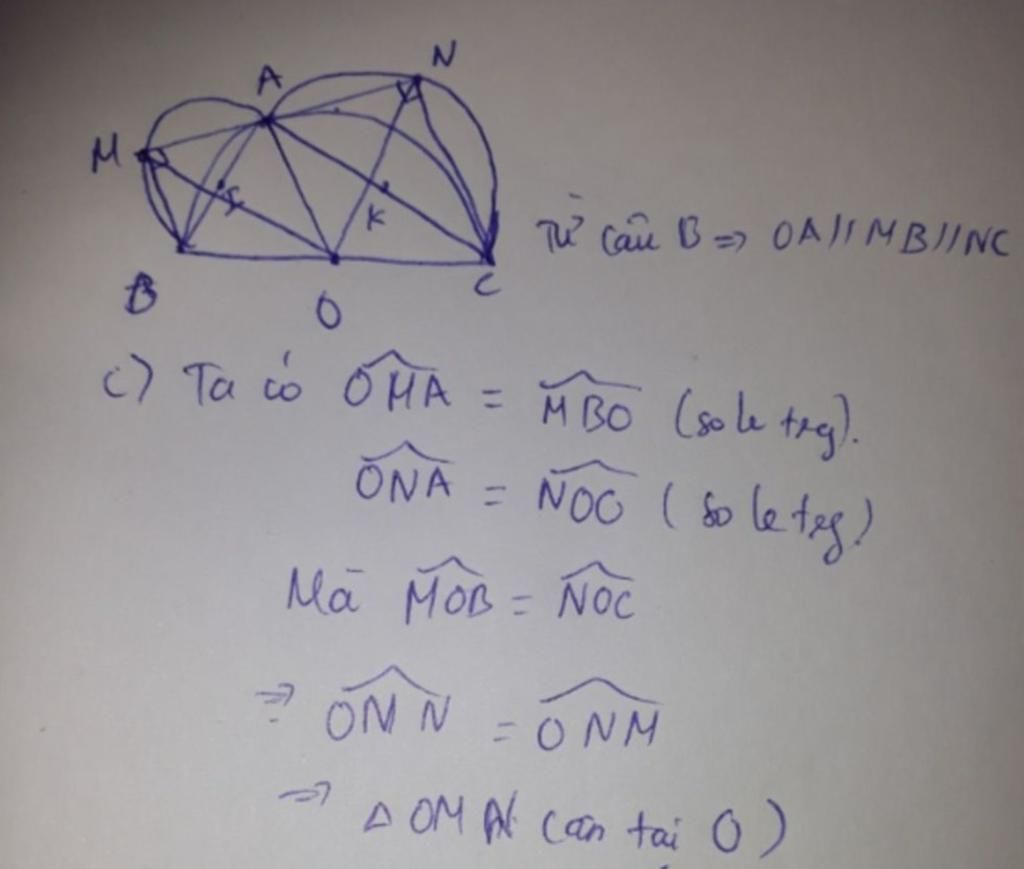 N
A
M
K
B
O
C
Từ câu B => OA // MB // NC
c) Ta có OMA = MBO (so le trg).
ONA = NOC (so le trg)
Mà MOB = NOC
=> OMN = ONM
=> △OMN (cân tại O)